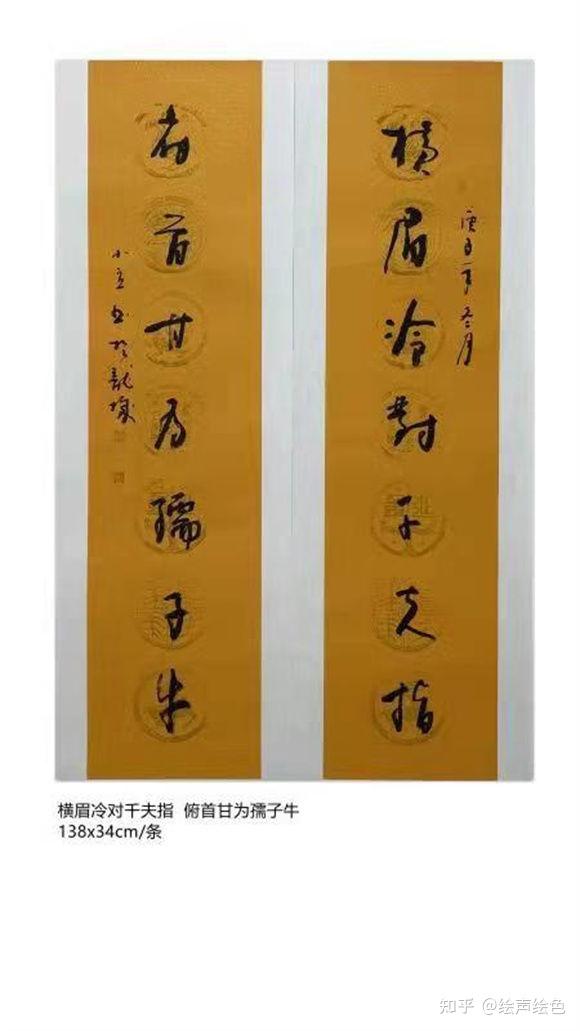 橫眉冷對千夫指
庚子年冬月
俯首甘为孺子牛
书於龍城
横眉冷对千夫指 俯首甘为孺子牛
138x34cm/条
知乎 @绘声绘色